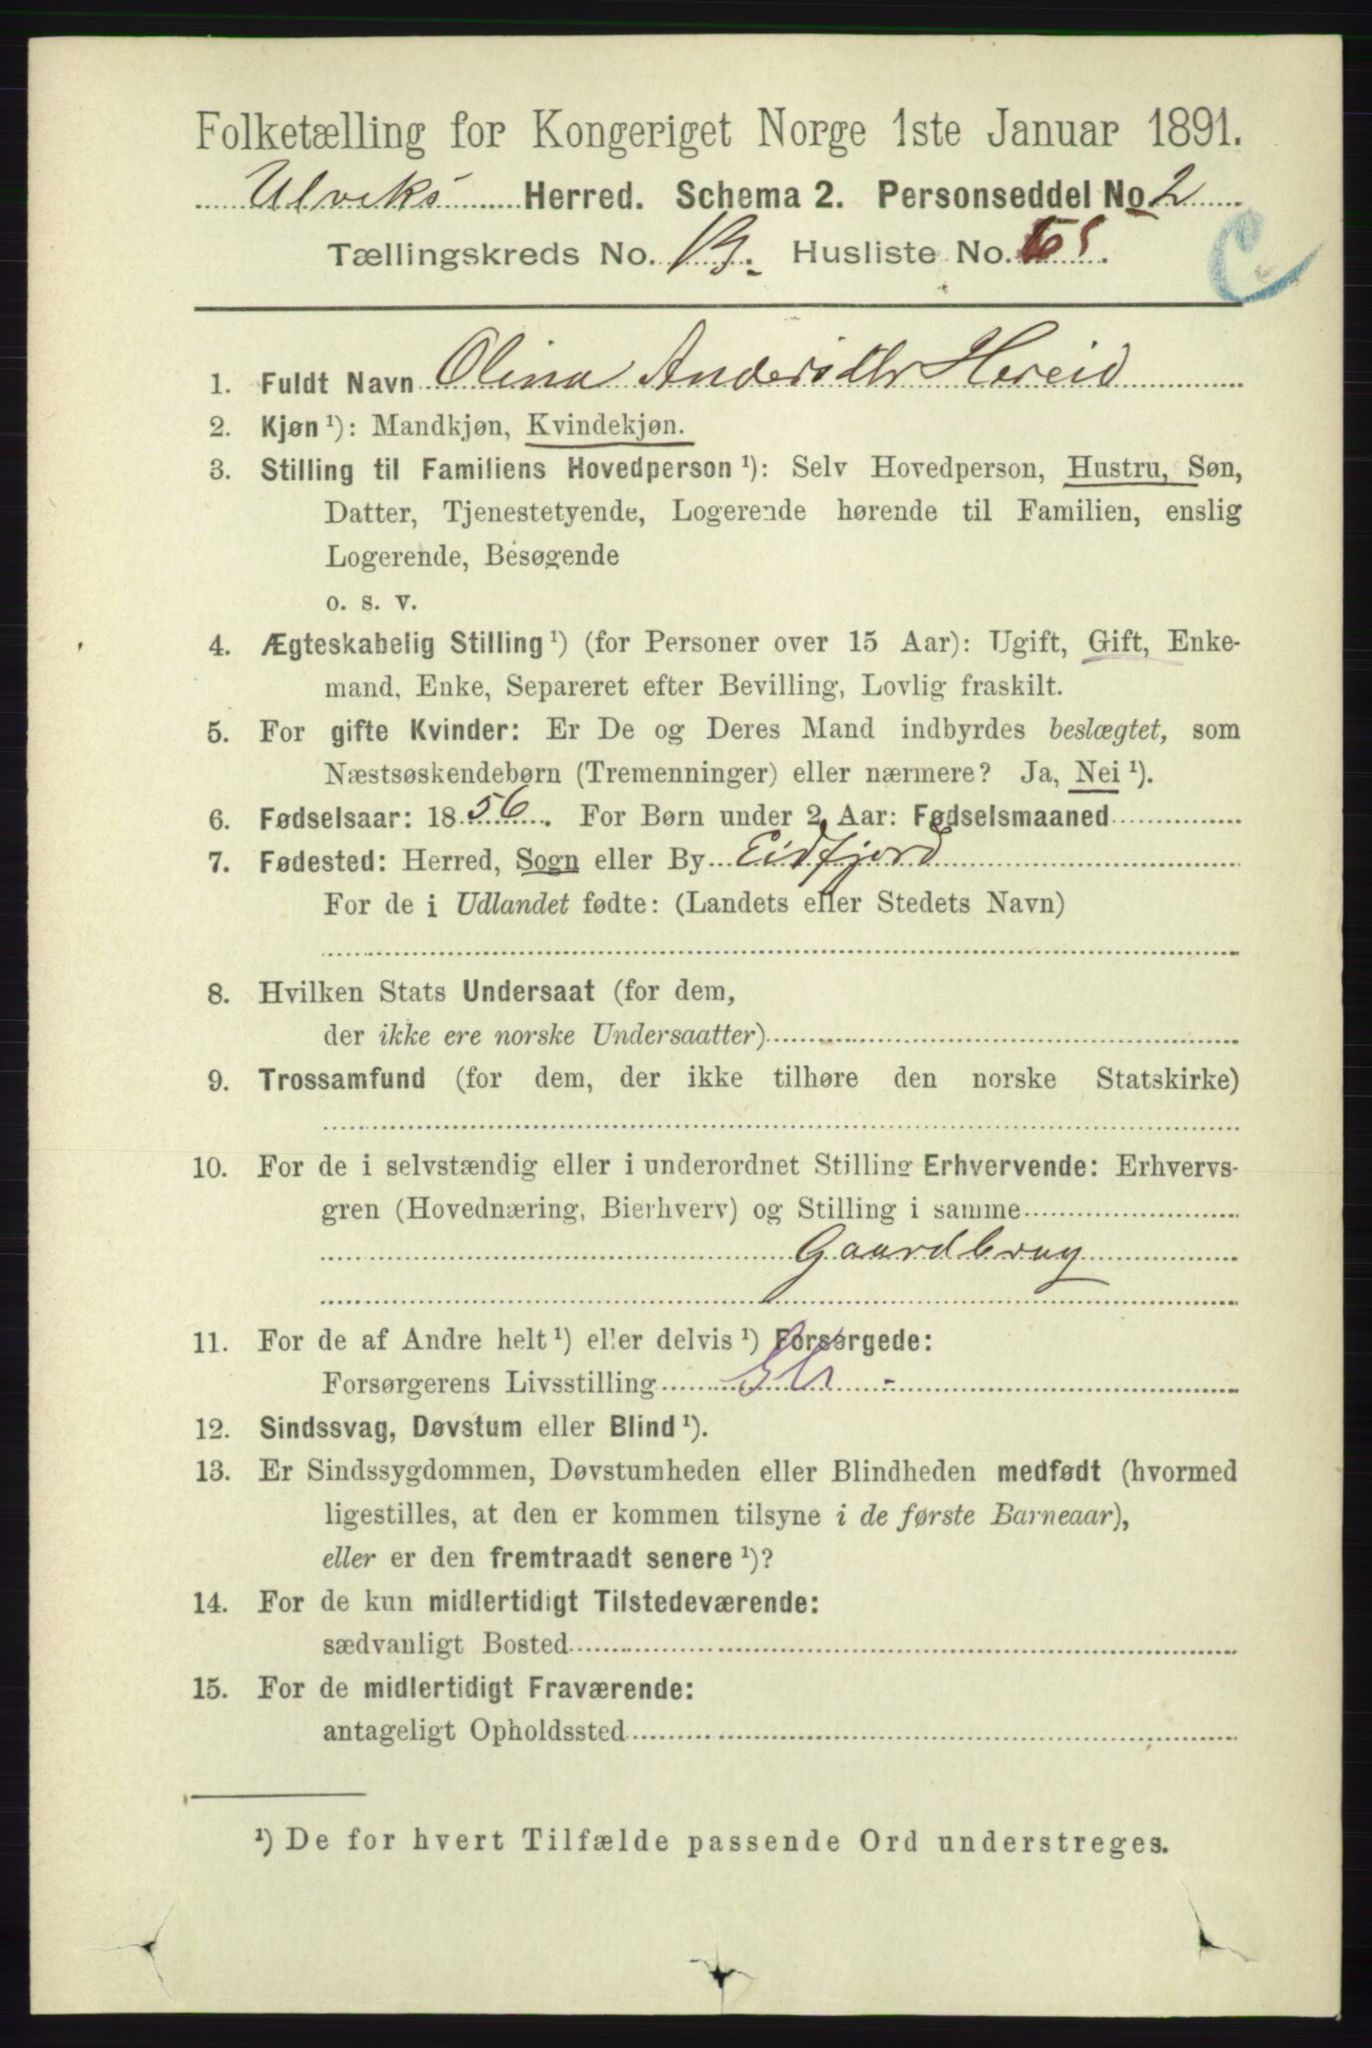 Folketælling for Kongeriget Norge 1ste Januar 1891.
Ulviks Herred. Schema 2. Personseddel No 2
Tællingskreds No. 13. Husliste No.
C
1. Fuldt Navn Olina Andersdtr Hereid
2. Kjøn ¹): Mandkjøn, Kvindekjøn.
3. Stilling til Familiens Hovedperson ¹): Selv Hovedperson, Hustru, Søn,
Datter, Tjenestetyende, Logerende hørende til Familien, enslig
Logerende, Besøgende
o. s. v.
4. Ægteskabelig Stilling ¹) (for Personer over 15 Aar): Ugift, Gift, Enke-
mand, Enke, Separeret efter Bevilling, Lovlig fraskilt.
5. For gifte Kvinder: Er De og Deres Mand indbyrdes beslægtet, som
Næstsøskendebørn (Tremenninger) eller nærmere? Ja, Nei ¹).
6. Fødselsaar: 1856. For Børn under 2 Aar: Fødselsmaaned
7. Fødested: Herred, Sogn eller By Eidfjord
For de i Udlandet fødte: (Landets eller Stedets Navn)
8. Hvilken Stats Undersaat (for dem,
der ikke ere norske Undersaatter)
9. Trossamfund (for dem, der ikke tilhøre den norske Statskirke)
10. For de i selvstændig eller i underordnet Stilling Erhvervende: Erhvervs-
gren (Hovednæring, Bierhverv) og Stilling i samme
Gaardbrug
11. For de af Andre helt ¹) eller delvis ¹) Forsørgede:
Forsørgerens Livsstilling
12. Sindssvag, Døvstum eller Blind ¹).
13. Er Sindssygdommen, Døvstumheden eller Blindheden medfødt (hvormed
ligestilles, at den er kommen tilsyne i de første Barneaar),
eller er den fremtraadt senere ¹)?
14. For de kun midlertidigt Tilstedeværende:
sædvanligt Bosted
15. For de midlertidigt Fraværende:
antageligt Opholdssted
¹) De for hvert Tilfælde passende Ord understreges.